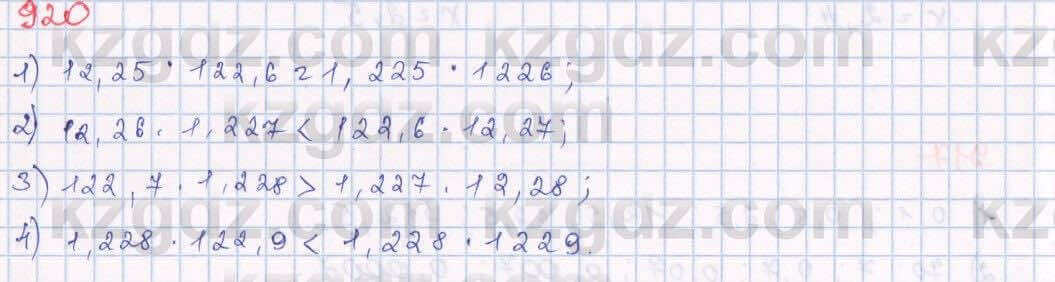 920
kzgdz.com kzgdz.com kz
1) 12,25 · 122,6 = 1,225 · 1226;
kzgdz.com
2) 12,26 · 1,227 < 122,6 · 12,27;
3) 122,7 · 1,228 > 1,227 · 12,28;
kzgdz.com kzgdz.com kz
4) 1,228 · 122,9 < 1,228 · 1229.